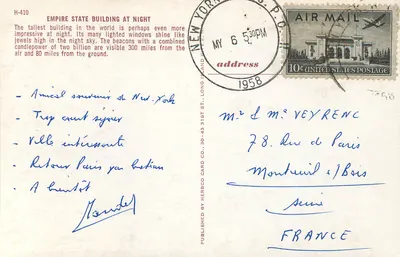 H-430
EMPIRE STATE BUILDING AT NIGHT
The tallest building in the world is perhaps even more
impressive at night. Its many lighted windows shine like
jewels high in the night sky. The beacons with a combined
candlepower of two billion are visible 300 miles from the
air and 80 miles from the ground.
- Amical souvenir de New-York
- Trop court séjour
- Ville intéressante
- Retour Paris par
- A bientôt
PUBLISHED BY HERBCO CARD CO.
address
NEW YORK
MY 6 5 30PM
1958
AIR MAIL
10¢ UNITED STATES POSTAGE
M. & Mme VEYRENC
78. Rue de Paris
Montreuil s/Bois
Seine
FRANCE